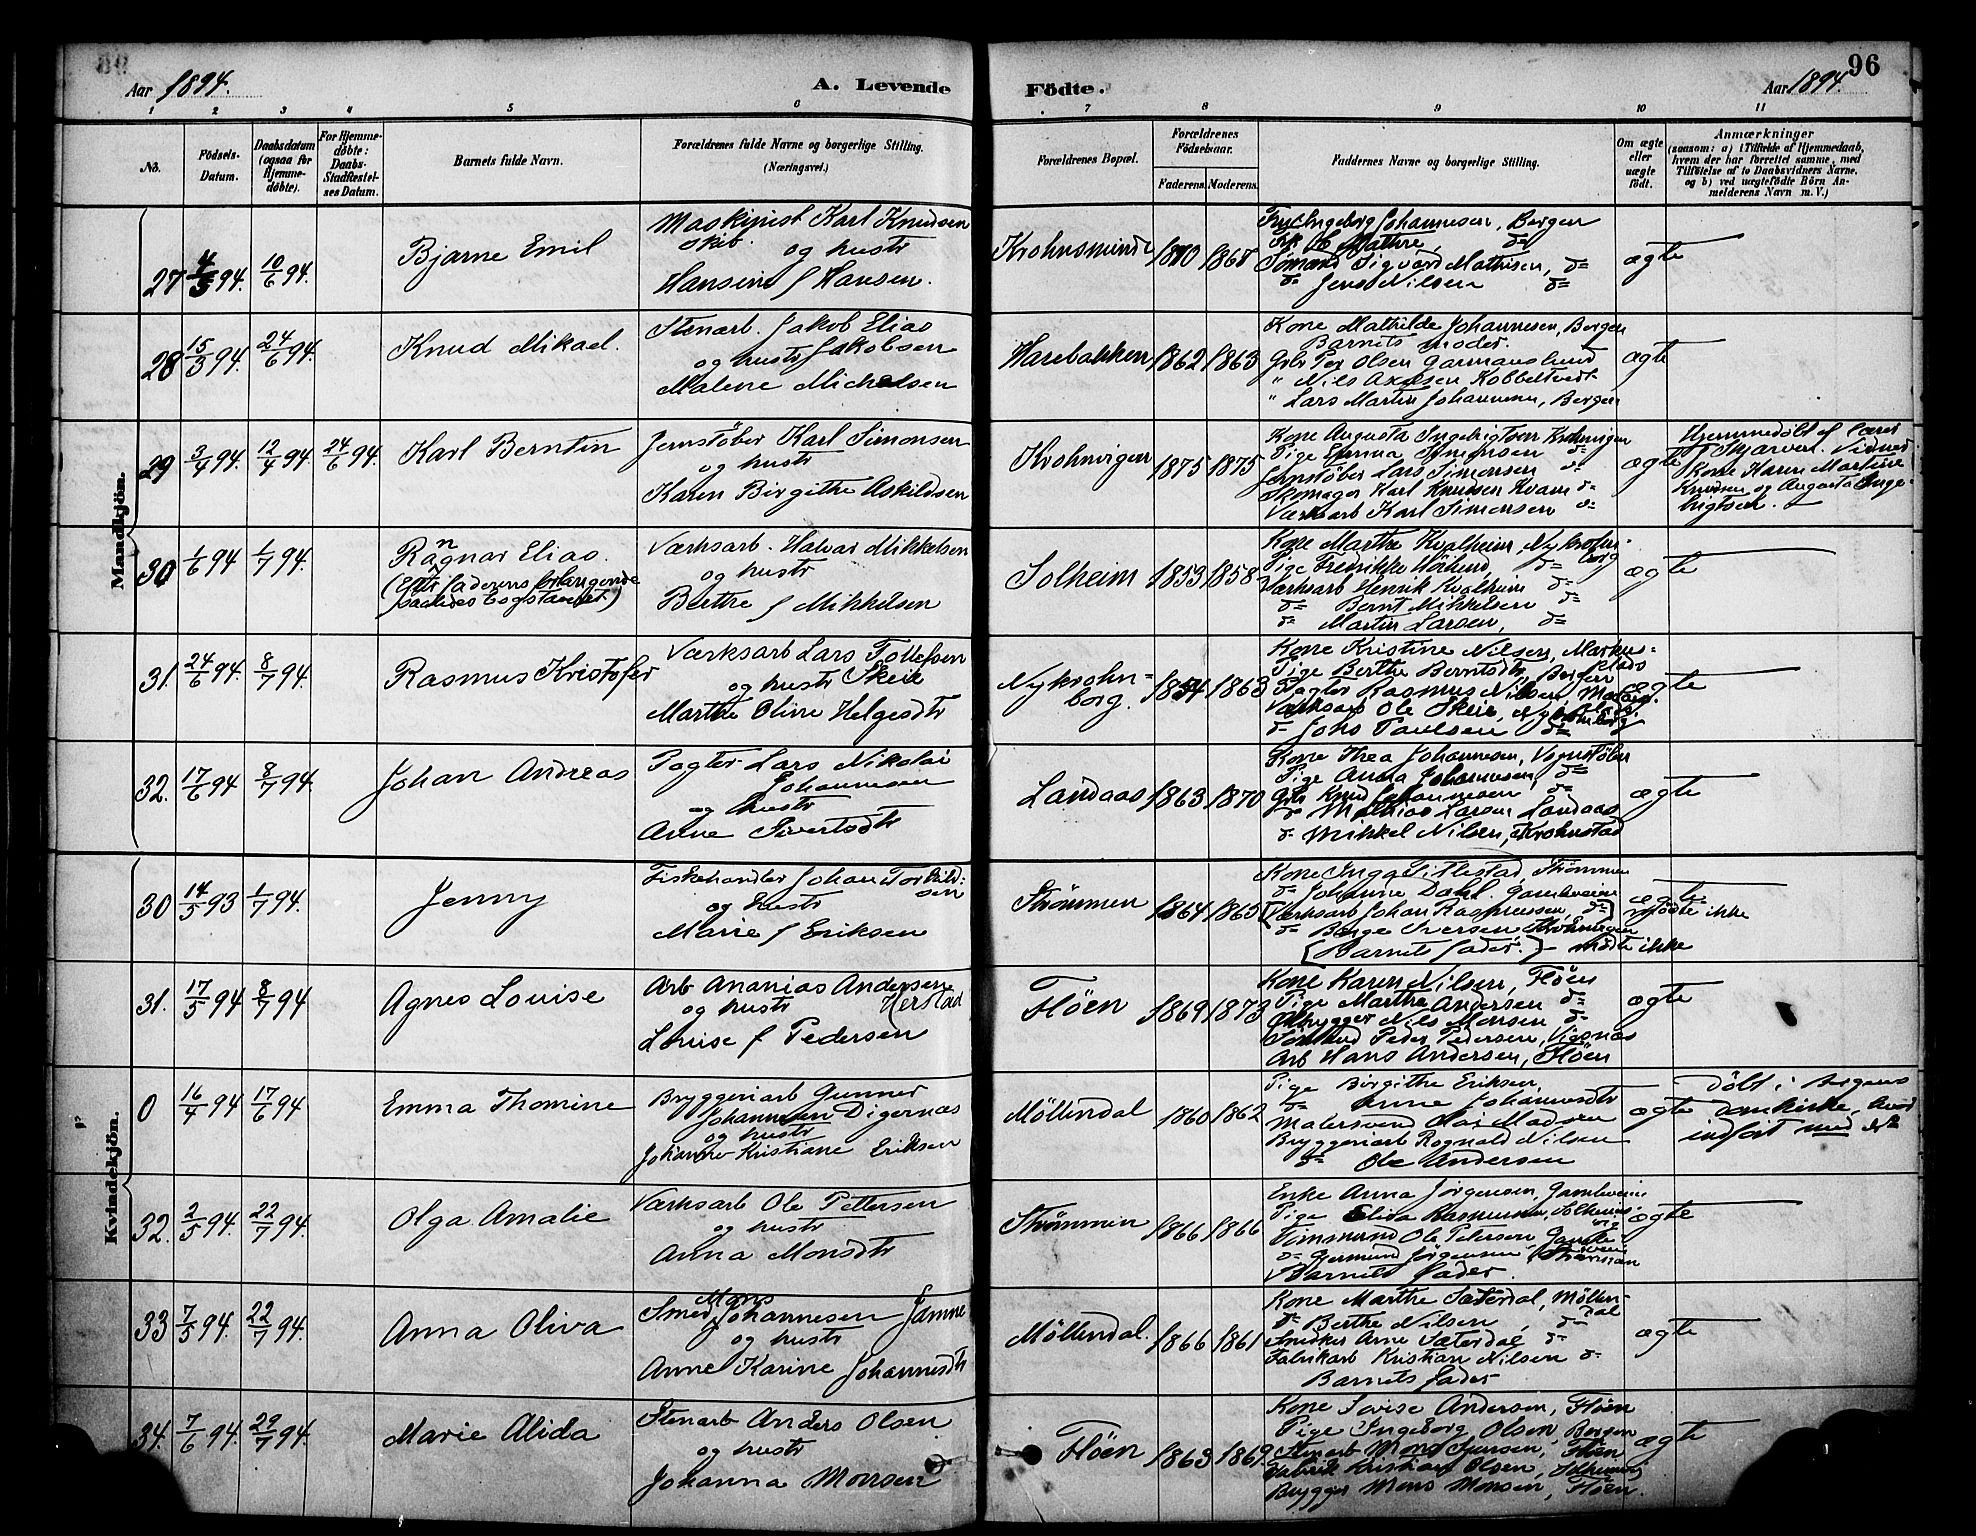 96
Aar 1894.
A. Levende
Födte.
Aar 1894.
1 2 3 4 5 6 7 8 9 10 11
No.
Födsels-Datum.
Daabsdatum (ogsaa for Hjemme-döbte).
For Hjemme-döbte: Daabs-Stadfæstel-ses Datum.
Barnets fulde Navn.
Forældrenes fulde Navne og borgerlige Stilling.
(Næringsvei.)
Forældrenes Bopæl.
Forældrenes Födselsaar.
Faderens. Moderens.
Faddernes Navne og borgerlige Stilling.
Om ægte eller uægte födt.
Anmærkninger
(saasom: a) i Tilfælde af Hjemmedaab,
hvem der har forrettet samme, med
Tilföielse af to Daabsvidners Navne,
og b) ved uægtefödte Börn An-
melderens Navn m. V.)
Mandkjön.
27 4/5 94. 10/6 94.
Bjarne Emil
Maskinist Karl Knudsen
og hustr
Hansine f Hansen.
Krohnsminde 1870 1868
Fru Ingeborg Johannesen, Bergen
Mathre, d=
Sömand Sigvard Mathisen, d=
d= Jens Nilsen d=
ægte
28 15/3 94. 24/6 94.
Knud Mikael.
Stenarb. Jakob Elias
og hustr Jakobsen
Malene Michelsen
Harebakken 1862 1863
Kone Mathilde Johannesen, Bergen
Barnets moder.
Grbr Per Olsen Garmanslund
" Nils Axelsen Kobbeltvedt
" Lars Martin Johannesen, Bergen
ægte
29 3/4 94. 12/4 94. 24/6 94.
Karl Berntin
Jernstøber Karl Simonsen
og hustr
Karen Birgithe Askildsen
Krohnvigen 1875 1875
Kone Augusta Ingebrigtsen Krohnvigen
Pige Emma Simonsen d=
Jernstøber Lars Simonsen d=
Skomager Karl Knudsen Kvam d=
Værksarb Karl Simonsen d=
ægte
Hjemmedöbt af lærer
T. Skjarven. Vidner
Kone Karen Martine
Knudsen og Augusta Inge-
brigtsen.
30 1/6 94 1/7 94.
Ragnar Elias.
(Efter faderens forlangende
saaledes bogstaveret)
Værksarb. Halvar Mikkelsen
og hustr
Berthe f Mikkelsen
Solheim 1853 1858
Kone Marthe Kvalheim, Nykrohn-
borg
Pige Fredrikke Höilund, d=
Værksarb Henrik Kvalheim d=
d= Bernt Mikkelsen d=
d= Martin Larsen, d=
ægte
31. 24/6 94. 8/7 94.
Rasmus Kristofer
Værksarb Lars Tollefsen
og hustr Skeie
Marthe Oline Helgesdtr
Nykrohn-
borg. 1854 1863
Kone Kristine Nilsen, Markus-
plads
Pige Berthe Berntsdtr, Bergen
Pagter Rasmus Nilsen,
Værksarb Ole Skeie, Nykrohnborg
d= Johs Paulsen d=
ægte
32. 17/6 94 8/7 94.
Johan Andreas
Pagter Lars Nikolai
Johannesen
og hustr
Anne Sivertsdtr
Landaas 1863 1870
Kone Thea Johannesen, Vognstølen
Pige Anna Johannesen, d=
Grbr Knud Johannesen, d=
d= Mathias Larsen Landaas
d= Mikkel Nilsen, Krohnstad
ægte
Kvindekjön.
30 14/5 93 1/7 94.
Jenny
Fiskehandler Johan Torkild-
sen
og hustr
Marie f Eriksen
Strömmen 1864 1865
Kone Inga Sitlestad, Strömmen
d= Johanne Dahl. Gamleveien
(Værksarb Johan Rasmussen, d=) mödte ikke
d= Børge Iversen
(Barnets fader.) - mödte ikke
ægte
31. 17/5 94 8/7 94
Agnes Louise
Arb Ananias Andersen
og hustr Herstad
Louise f Pedersen
Flöen 1869 1873
Kone Karen Nilsen, Flöen
Pige Martha Andersen d=
Ølbrygger Nils Monsen d=
Peder Pedersen, Vigsnæs
Arb Hans Andersen, Flöen
ægte
0 16/4 94 17/6 94
Emma Thomine
Bryggeriarb Gunner
Johannesen Digernæs
og hustr
Johanne Kristiane Eriksen
Möllendal 1860 1862
Pige Birgithe Eriksen,
d= Anne Johannesdtr
Malersvend Olai Madsen
Bryggeriarb Rognald Nilsen
d= Ole Andersen
ægte
Döbt i Bergens
Domkirke, hvor
indfört med No
32. 2/5 94. 22/7 94.
Olga Amalie
Værksarb Ole Pettersen
og hustr
Anna Monsdtr
Strömmen 1866 1866
Enke Anna Jørgensen, Gamleveien
Pige Elida Rasmussen, Solheims-
Tomsmand Ole Petersen Gamle-
veien
d= Gjermund Jørgensen Strömmen
Barnets fader.
ægte
33 7/5 94. 22/7 94.
Anna Oliva
Mons
Smed Johannesen Jamne
og hustr
Anne Karine Johannesdtr
Möllendal. 1866 1861
Kone Marthe Sæterdal, Möllen-
dal
d= Berthe Nilsen, d=
Snedker Arne Sæterdal d=
Fabrikarb Kristian Nilsen d=
Barnets fader
ægte
34. 7/6 94. 29/7 94.
Marie Alida
Stenarb Anders Olsen
og hustr
Johanna Monsen
Flöen 1863 1869.
Kone Lovise Andersen, Flöen
Pige Ingeborg Olsen, Bergen
Stenarb Mons Jensen, Flöen
Fabrik Kristian Olsen, Solheimsv
Brygger Mons Monsen, Flöen.
ægte